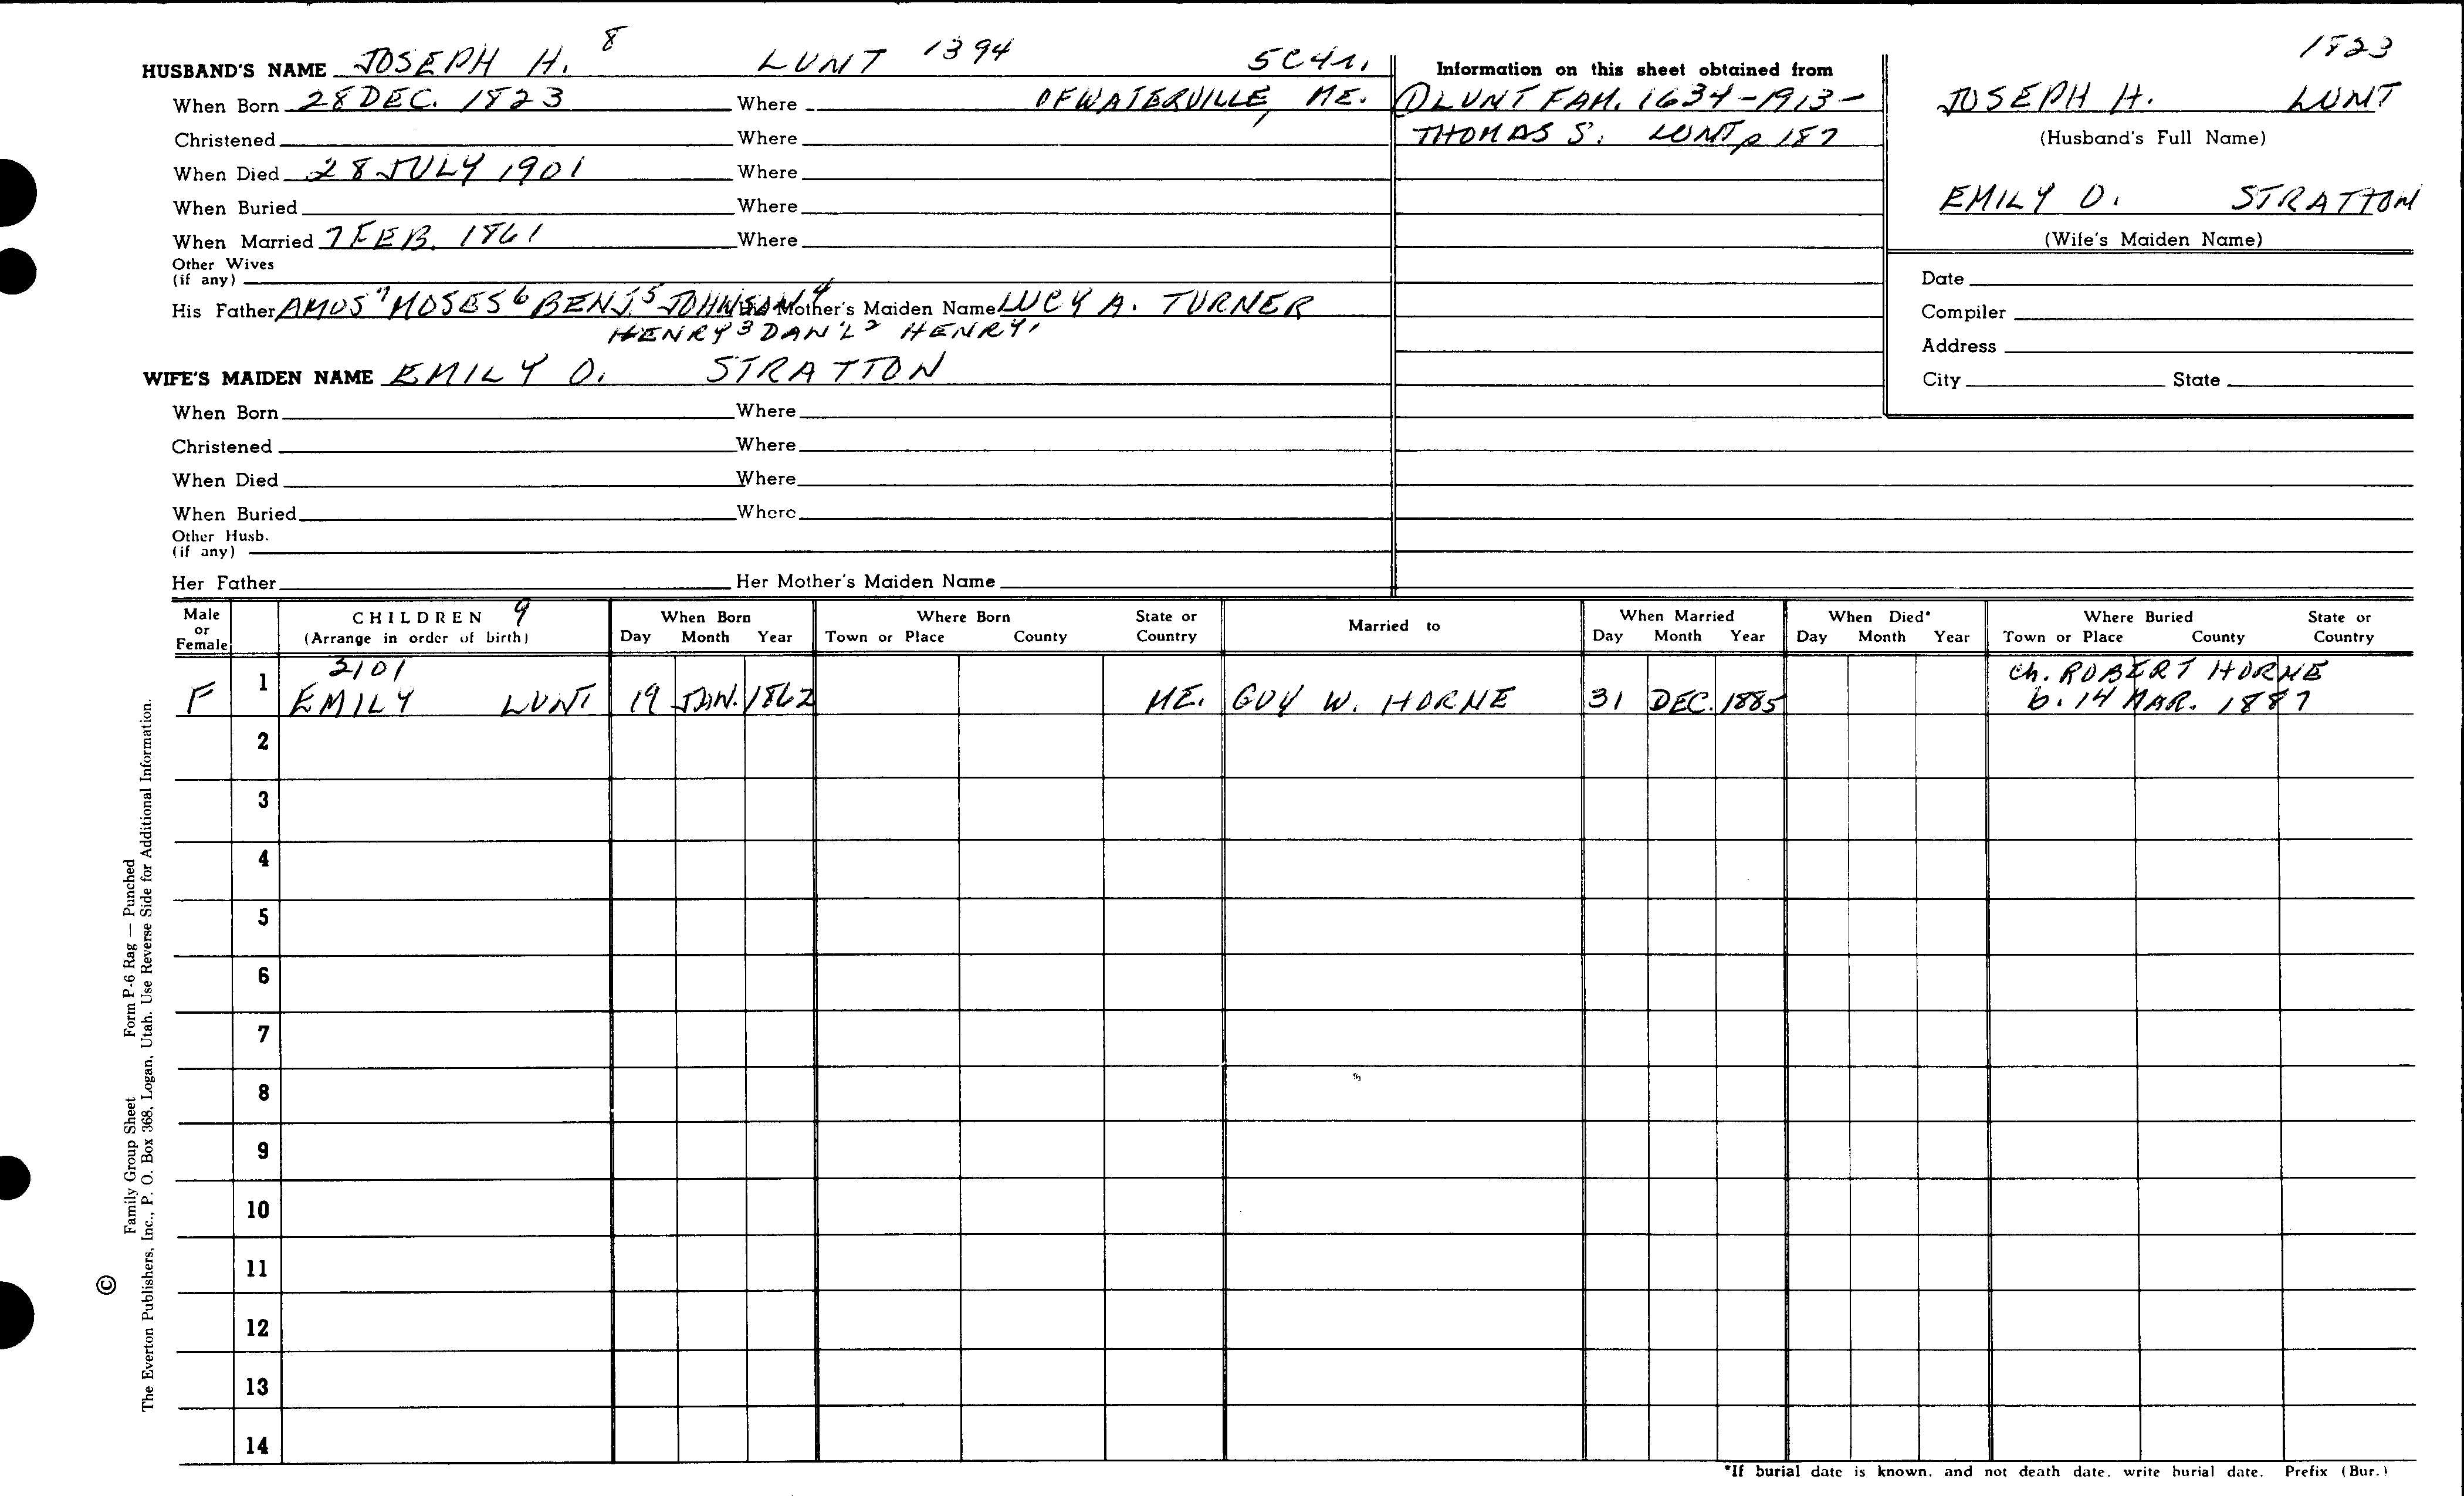 HUSBAND'S NAME JOSEPH H. 8 LUNT 1394 5C41,
When Born 28 DEC. 1823 Where OF WATERVILLE, ME.
Christened Where
When Died 28 JULY 1901 Where
When Buried Where
When Married 7 FEB. 1861 Where
Other Wives
(if any)
His Father AMOS 7 MOSES 6 BENJ. 5 JOHNSON 4 His Mother's Maiden Name LUCY A. TURNER
HENRY 3 DAN'L 2 HENRY 1
WIFE'S MAIDEN NAME EMILY O. STRATTON
When Born Where
Christened Where
When Died Where
When Buried Where
Other Husb.
(if any)
Her Father Her Mother's Maiden Name
Information on this sheet obtained from
① LUNT FAM. 1634-1913-
THOMAS S. LUNT p 187
1823
JOSEPH H. LUNT
(Husband's Full Name)
EMILY O. STRATTON
(Wife's Maiden Name)
Date
Compiler
Address
City State
Male or Female CHILDREN 9 (Arrange in order of birth) When Born Day Month Year Where Born Town or Place County State or Country Married to When Married Day Month Year When Died* Day Month Year Where Buried Town or Place County State or Country
2101 ch. ROBERT HORNE
F 1 EMILY LUNT 19 JAN. 1862 ME. GUY W. HORNE 31 DEC. 1885 b. 14 MAR. 1887
2
3
4
5
6
7
8
9
10
11
12
13
14
*If burial date is known, and not death date, write burial date. Prefix (Bur.)
© Family Group Sheet Form P-6 Rag — Punched
The Everton Publishers, Inc., P. O. Box 368, Logan, Utah. Use Reverse Side for Additional Information.